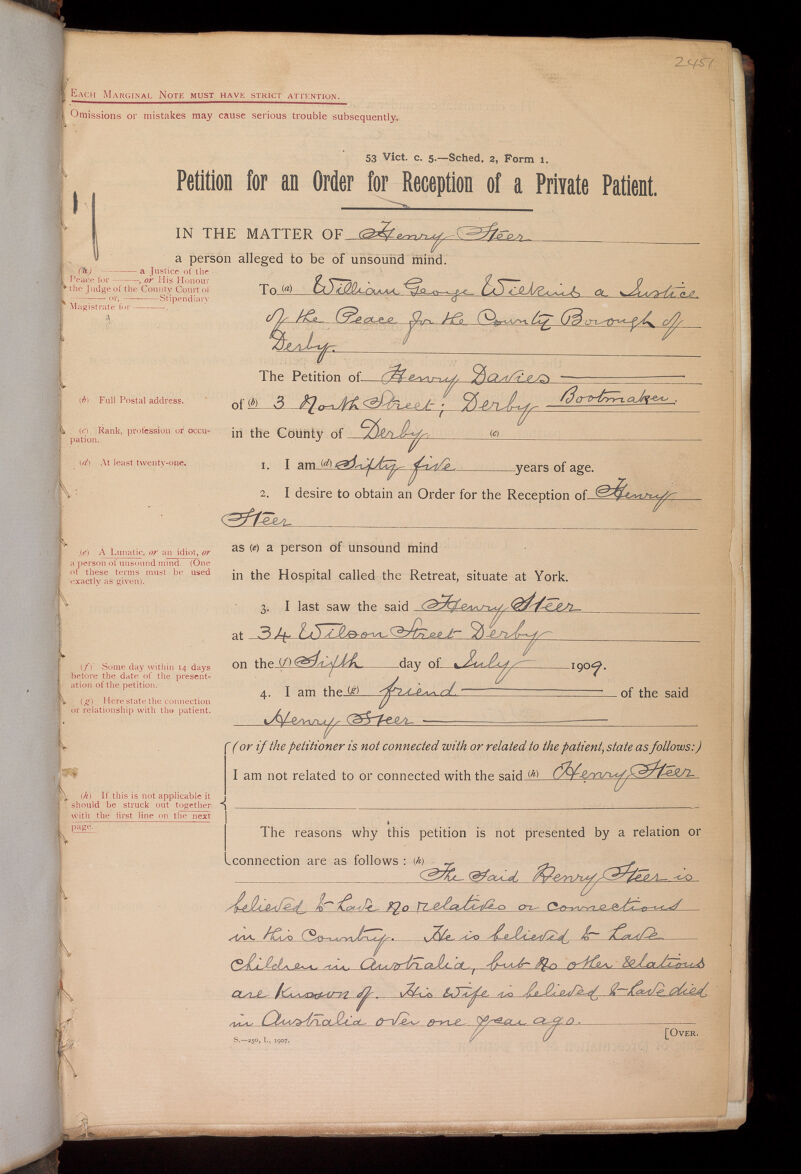 2451
EACH MARGINAL NOTE MUST HAVE STRICT ATTENTION.
Omissions or mistakes may cause serious trouble subsequently.
53 Vict. c. 5.—Sched. 2, Form 1.
Petition for an Order for Reception of a Private Patient.
IN THE MATTER OF Henry Steer
a person alleged to be of unsound mind.
(a) ——— a Justice of the
Peace for ———, or His Honour
the Judge of the County Court of
——— or, ——— Stipendiary
Magistrate for ———.
To (a) William George Wilkins a Justice
of the Peace for the County Borough of
Derby.
The Petition of Henry Davies
(b) Full Postal address.
of (b) 3 North Street; Derby Bootmaker.
(c) Rank, profession or occu-
pation.
in the County of Derby (c)
(d) At least twenty-one.
1. I am (d) Sixty five years of age.
2. I desire to obtain an Order for the Reception of Henry
Steer
(e) A Lunatic, or an idiot, or
a person of unsound mind. (One
of these terms must be used
exactly as given).
as (e) a person of unsound mind
in the Hospital called the Retreat, situate at York.
3. I last saw the said Henry Steer
at 34 Wilson Street Derby
(f) Some day within 14 days
before the date of the present-
ation of the petition.
on the (f) Sixth day of July 1909.
(g) Here state the connection
or relationship with the patient.
4. I am the (g) friend of the said
Henry Steer
(or if the petitioner is not connected with or related to the patient, state as follows:)
I am not related to or connected with the said (h) Henry Steer
(h) If this is not applicable it
should be struck out together
with the first line on the next
page.
The reasons why this petition is not presented by a relation or
connection are as follows: (h)
The said Henry Steer is
believed to have no relatives or connections
in this Country. He is believed to have
children in Australia, but no other relations
are known of. His wife is believed to have died
in Australia over one year ago.
S.—250, I., 1907.
[OVER.